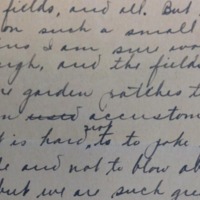 fields, and all. But
on such a small
I am sure wo
ugh, and the fields
e garden patches t
n used accustom
t is hard, not to to joke
e and not to blow ab
but we are such gre